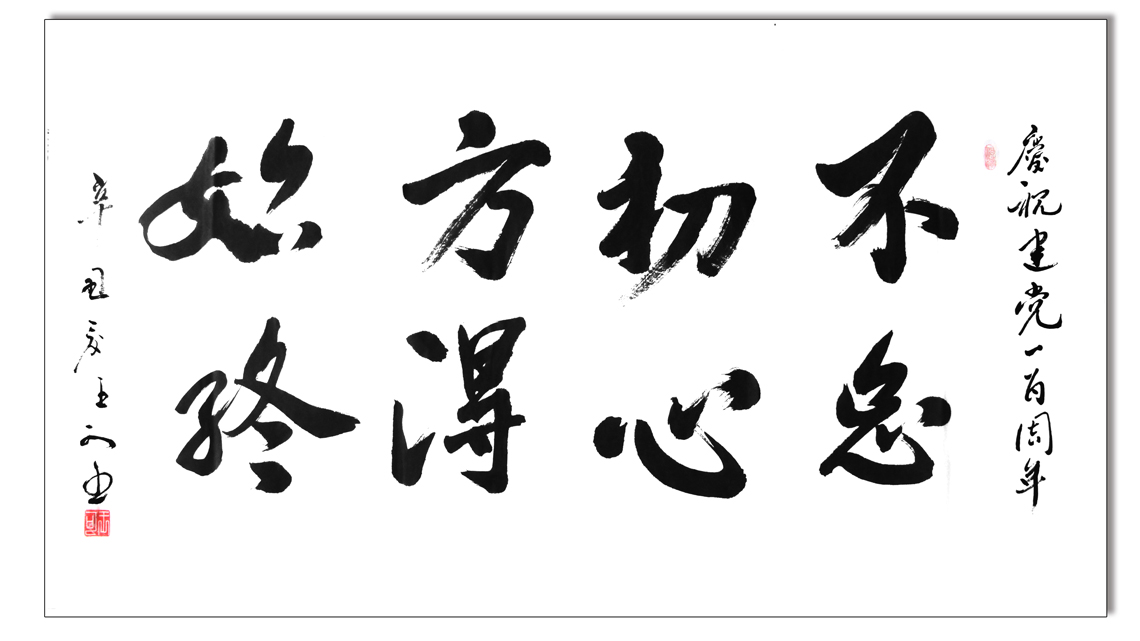 慶祝建党一百周年
不忘
初心
方得
始终
辛丑夏王